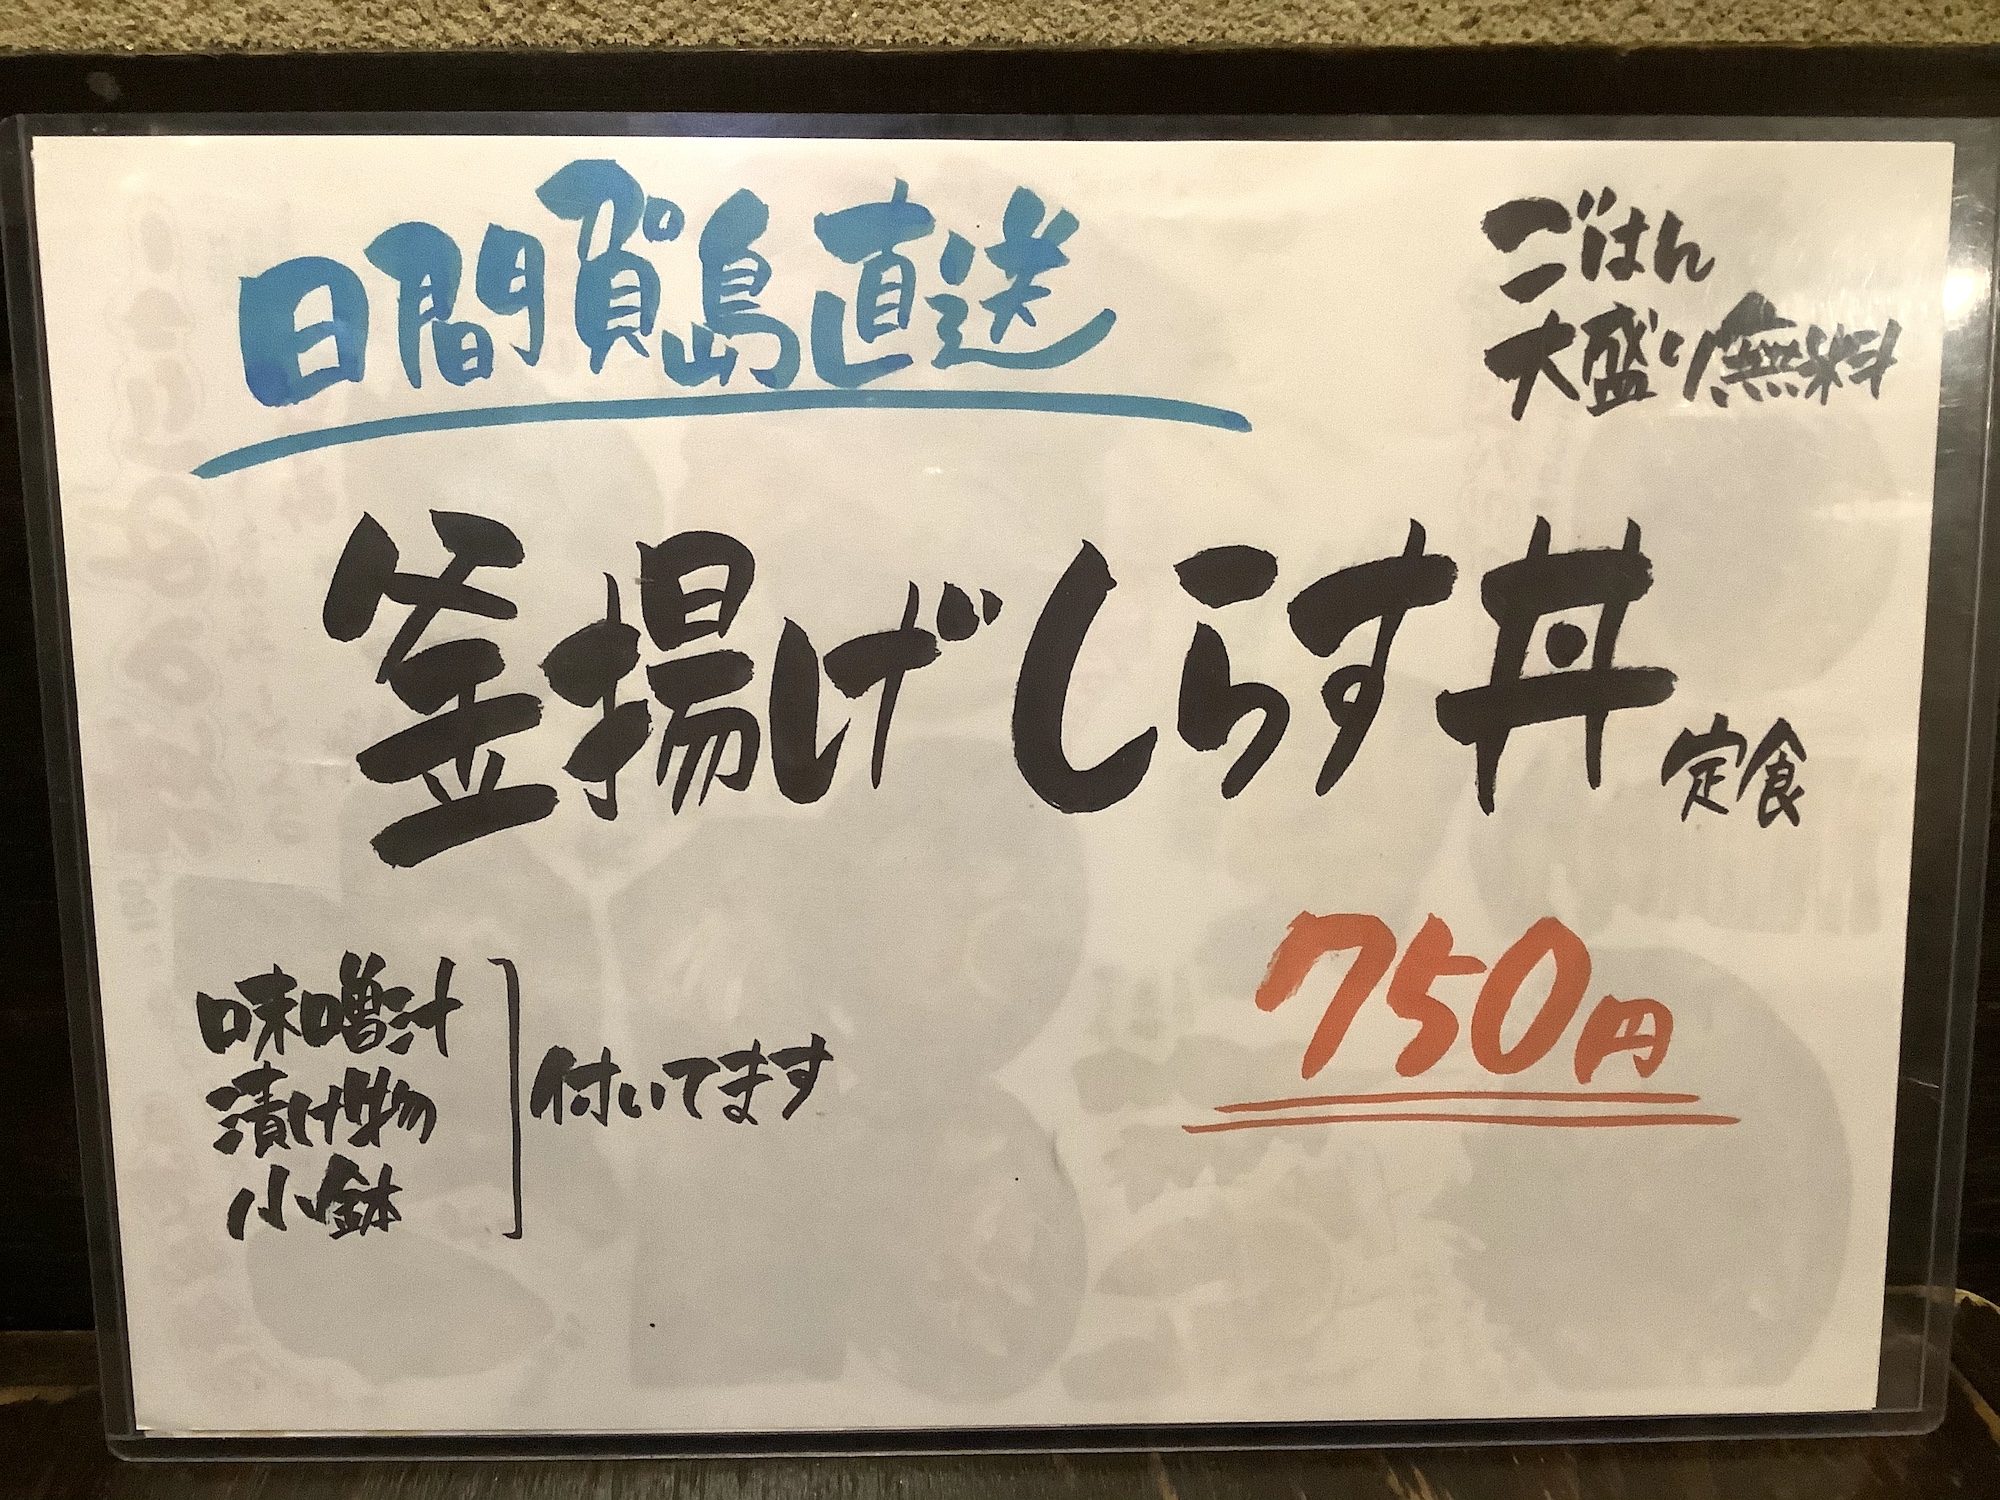 日間賀島直送
ごはん
大盛り無料
釜揚げしらす丼定食
750円
味噌汁
漬け物
小鉢
付いてます